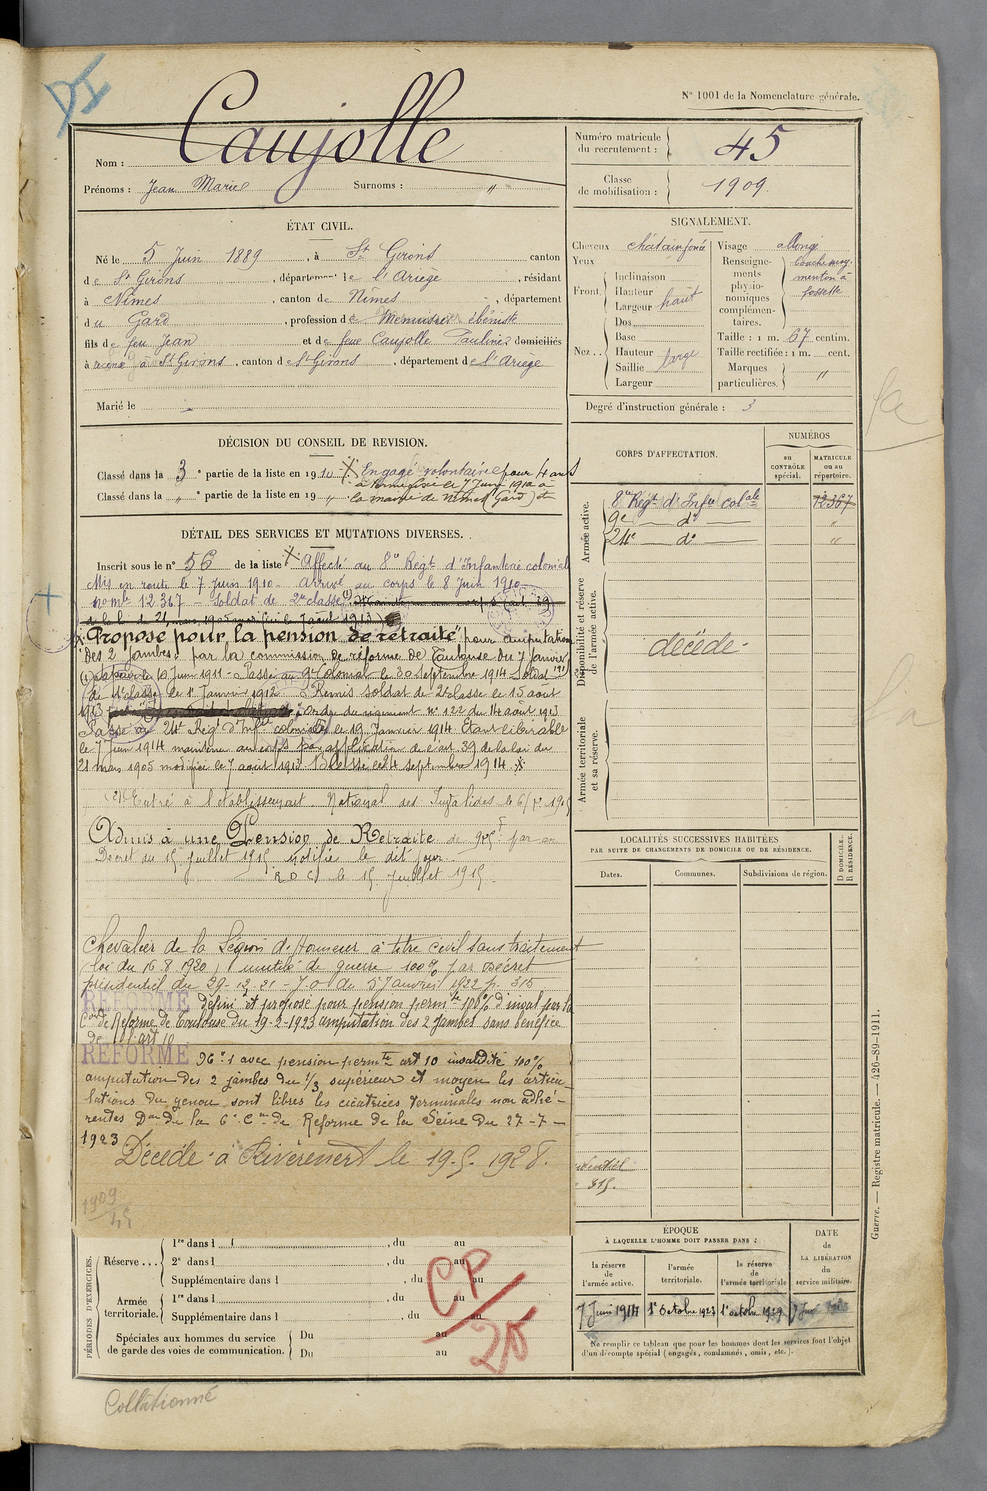 DI
N° 1001 de la Nomenclature générale.
Nom : Caujolle
Prénoms : Jean Marie Surnoms : "
Numéro matricule du recrutement : 45
Classe de mobilisation : 1909
ÉTAT CIVIL.
Né le 5 Juin 1889, à St Girons canton
de St Girons, département de l'Ariège, résidant
à Nîmes, canton de Nîmes, département
du Gard, profession de Menuisier ébéniste
fils de feu Jean et de feue Caujolle Pauline domiciliés
à St Girons, canton de St Girons, département de l'Ariège
Marié le
SIGNALEMENT.
Cheveux châtain foncé
Yeux
Front
Inclinaison
Hauteur
Largeur haut
Nez
Dos
Base
Hauteur
Saillie large
Largeur
Visage allongé
Renseignements physionomiques complémentaires. bouche moy. menton à fossette
Taille : 1 m. 67 centim.
Taille rectifiée : 1 m. cent.
Marques particulières. "
Degré d'instruction générale : 3
DÉCISION DU CONSEIL DE REVISION.
Classé dans la 3e partie de la liste en 1910 - Engagé volontaire pour 4 ans
Classé dans la " e partie de la liste en 19 "
le 7 Juin 1910 à
la mairie de Nîmes (Gard)
DÉTAIL DES SERVICES ET MUTATIONS DIVERSES.
Inscrit sous le n° 56 de la liste Affecté au 8e Régt d'Infanterie colonial
Mis en route le 7 Juin 1910 - Arrivé au corps le 8 Juin 1910
no mle 12.367 - Soldat de 2e classe (1)
"Proposé pour la pension de retraite" pour amputation
des 2 jambes par la commission de réforme de Toulouse du 7 Janvier 1915
le 10 Juin 1911 - Passé au 9e Colonial le 30 septembre 1911 Soldat
de 1e classe le 1er Janvier 1912 - Remis soldat de 2e classe le 15 août
1913 ordre du régiment n° 122 du 14 août 1913
Passé au 24e Régt d'Inftie coloniale le 19 Janvier 1914 Etant libérable
le 7 Juin 1914 maintenu au corps par application de l'art. 39 de la loi du
21 mars 1905 modifiée le 7 août 1913. Blessé le 24 septembre 1914
(2) Entré à l'établissement National des Invalides le
Admis à une Pension de Retraite de 975f par an
Décret du 15 juillet 1915 notifié le dit jour
R D C le 15 Juillet 1915
Chevalier de la Légion d'Honneur à titre civil sans traitement
(loi du 16.8.1920) mutilé de guerre 100% par décret
présidentiel du 29-12-21 - J.O du 5 Janvier 1922 p. 315
RÉFORMÉ définitif et proposé pour pension permte 100% d'inval par la
Con de Réforme de Toulouse du 19-2-1923 amputation des 2 jambes sans bénéfice
de l'art 10
RÉFORMÉ No 1 avec pension permte art 10 invalidité 100%
amputation des 2 jambes du 1/3 supérieur et moyen les articu
lations du genou sont libres les cicatrices terminales non adhé-
rentes Don de la 6e Con de Réforme de la Seine du 27-7-
1923
Décédé à Rivèrenert le 19.5.1928.
1909
45
CORPS D'AFFECTATION.
NUMÉROS
au CONTRÔLE spécial.
MATRICULE ou au répertoire.
Armée active.
8e Régt d'Infie colale 12367
9e — do — "
24e — do — "
Disponibilité et réserve de l'armée active.
décédé -
Armée territoriale et sa réserve.
LOCALITÉS SUCCESSIVES HABITÉES
PAR SUITE DE CHANGEMENTS DE DOMICILE OU DE RÉSIDENCE.
Dates. Communes. Subdivisions de région. D DOMICILE. R RÉSIDENCE.
PÉRIODES D'EXERCICES.
Réserve ...
1re dans l , du au
2e dans l , du au
Supplémentaire dans l , du au
Armée territoriale.
1re dans l , du au
Supplémentaire dans l , du au
Spéciales aux hommes du service de garde des voies de communication.
Du au
Du au
CP/25
ÉPOQUE
À LAQUELLE L'HOMME DOIT PASSER DANS :
la réserve de l'armée active.
l'armée territoriale.
la réserve de l'armée territoriale
DATE de LA LIBÉRATION du service militaire.
7 Juin 1914 1er Octobre 1923 1er octobre 1929
Ne remplir ce tableau que pour les hommes dont les services font l'objet
d'un décompte spécial (engagés, condamnés, omis, etc.).
Guerre. — Registre matricule. — 426-89-1911.
Collationné